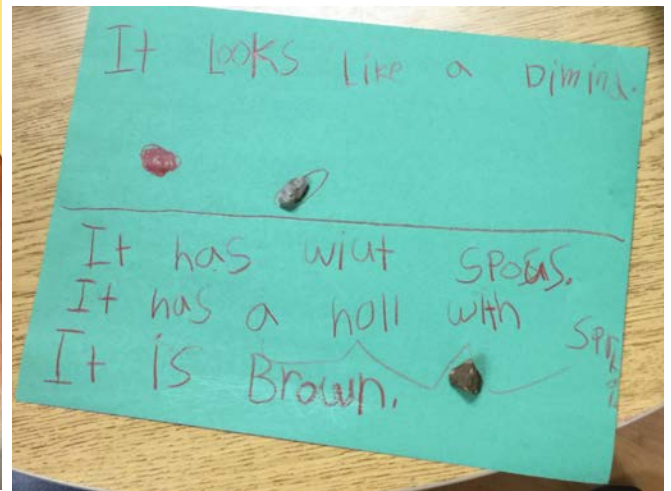 It Looks Like a Dimind.
It has wiut
It has a holl with
It is Brown.